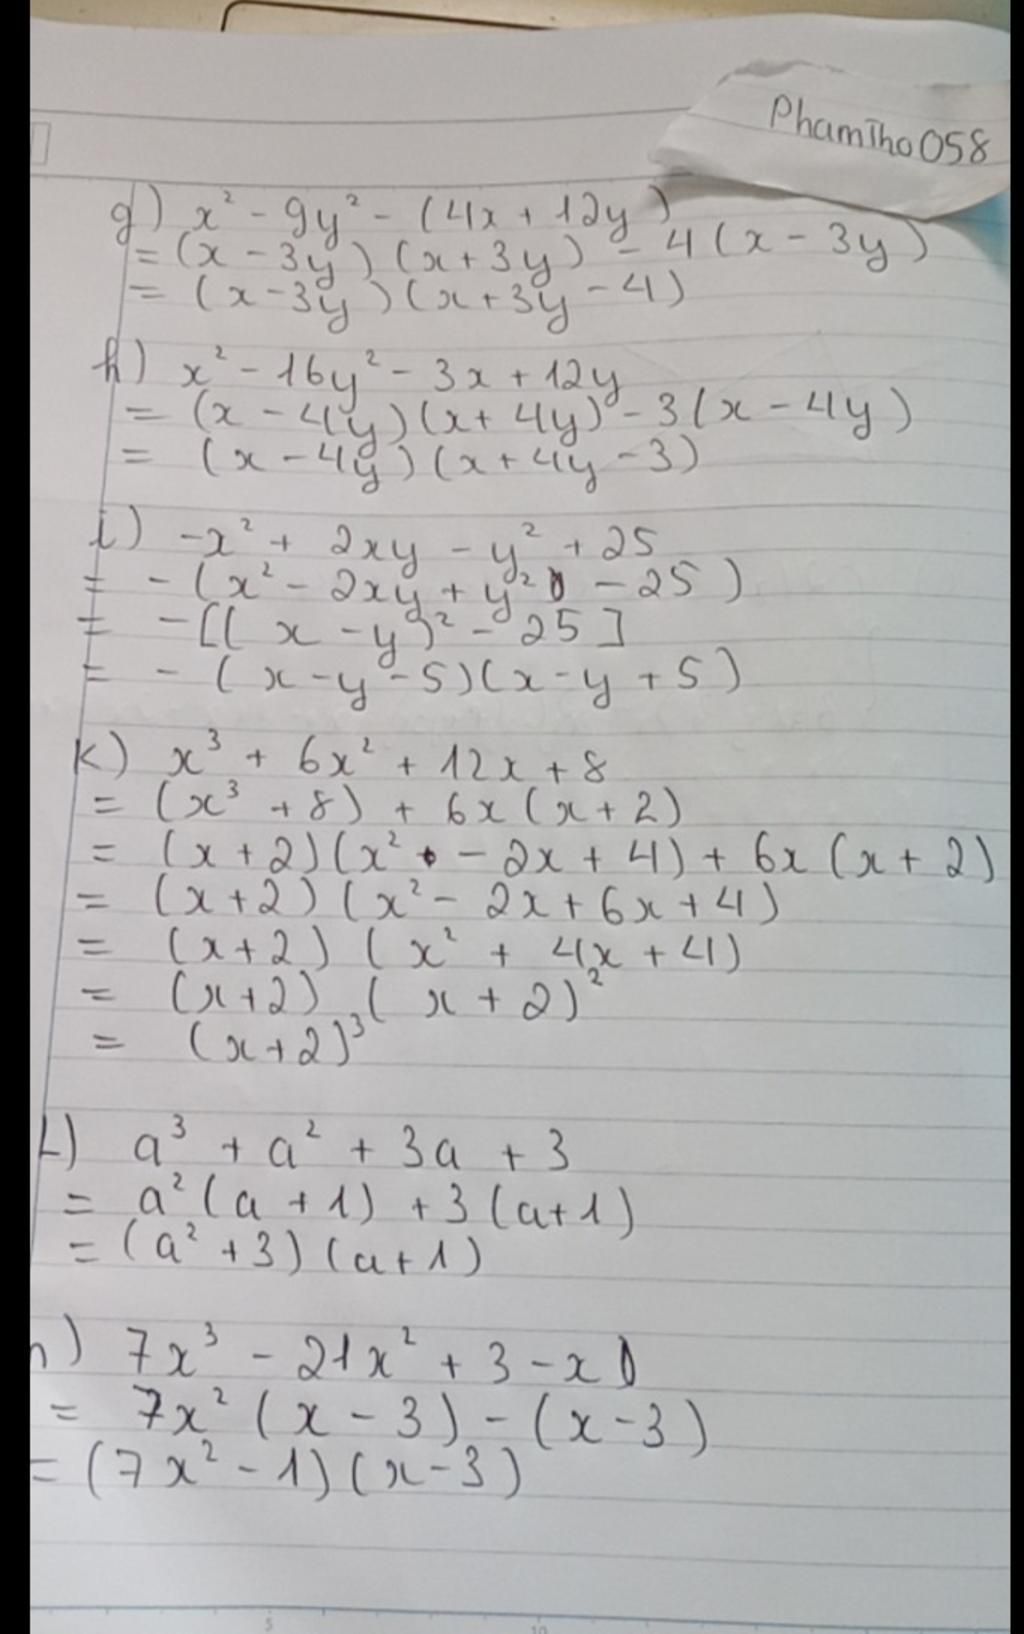 PhamTho058
g) x² - 9y² - (4x + 12y)
= (x - 3y)(x + 3y) - 4(x - 3y)
= (x - 3y)(x + 3y - 4)
h) x² - 16y² - 3x + 12y
= (x - 4y)(x + 4y) - 3(x - 4y)
= (x - 4y)(x + 4y - 3)
i) -x² + 2xy - y² + 25
= -(x² - 2xy + y² - 25)
= -[(x - y)² - 25]
= -(x - y - 5)(x - y + 5)
k) x³ + 6x² + 12x + 8
= (x³ + 8) + 6x(x + 2)
= (x + 2)(x² - 2x + 4) + 6x(x + 2)
= (x + 2)(x² - 2x + 6x + 4)
= (x + 2)(x² + 4x + 4)
= (x + 2)(x + 2)²
= (x + 2)³
L) a³ + a² + 3a + 3
= a²(a + 1) + 3(a + 1)
= (a² + 3)(a + 1)
) 7x³ - 21x² + 3 - x
= 7x²(x - 3) - (x - 3)
= (7x² - 1)(x - 3)
5 10